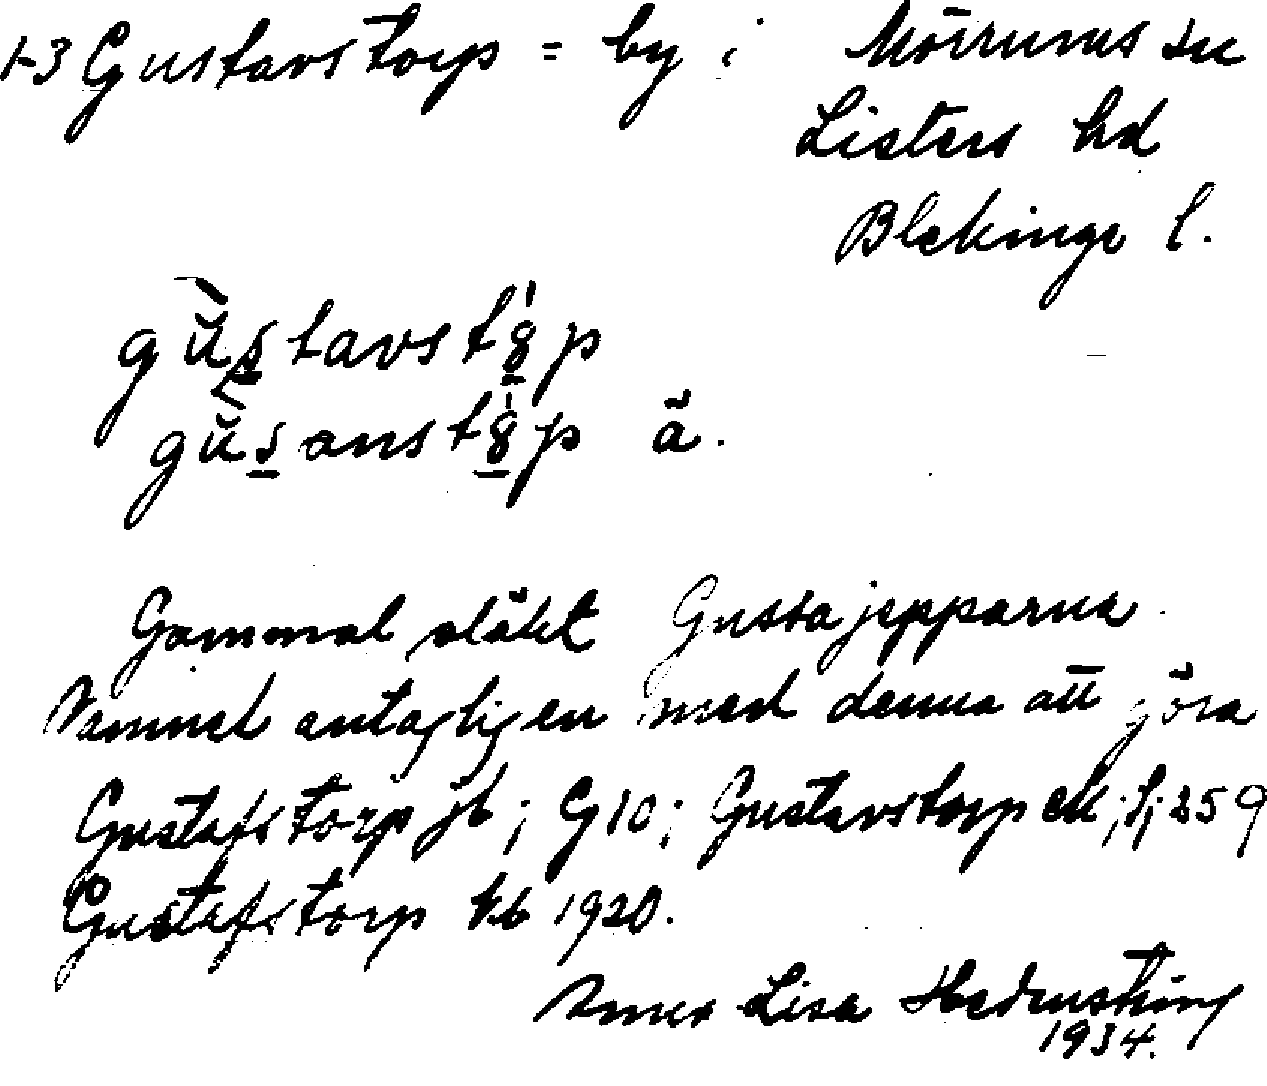 1-3 Gustavstorp = by i Mörrums sn
Listers hd
Blekinge l.
gùstavst8p
gŭsanst8p ä.
Gammal släkt Gustajepparna
Namnet antagligen med denna att göra
Gustafstorp jb; G10; Gustavstorp ek; 259
Gustafstorp kb 1920.
Anna Lisa
1934.